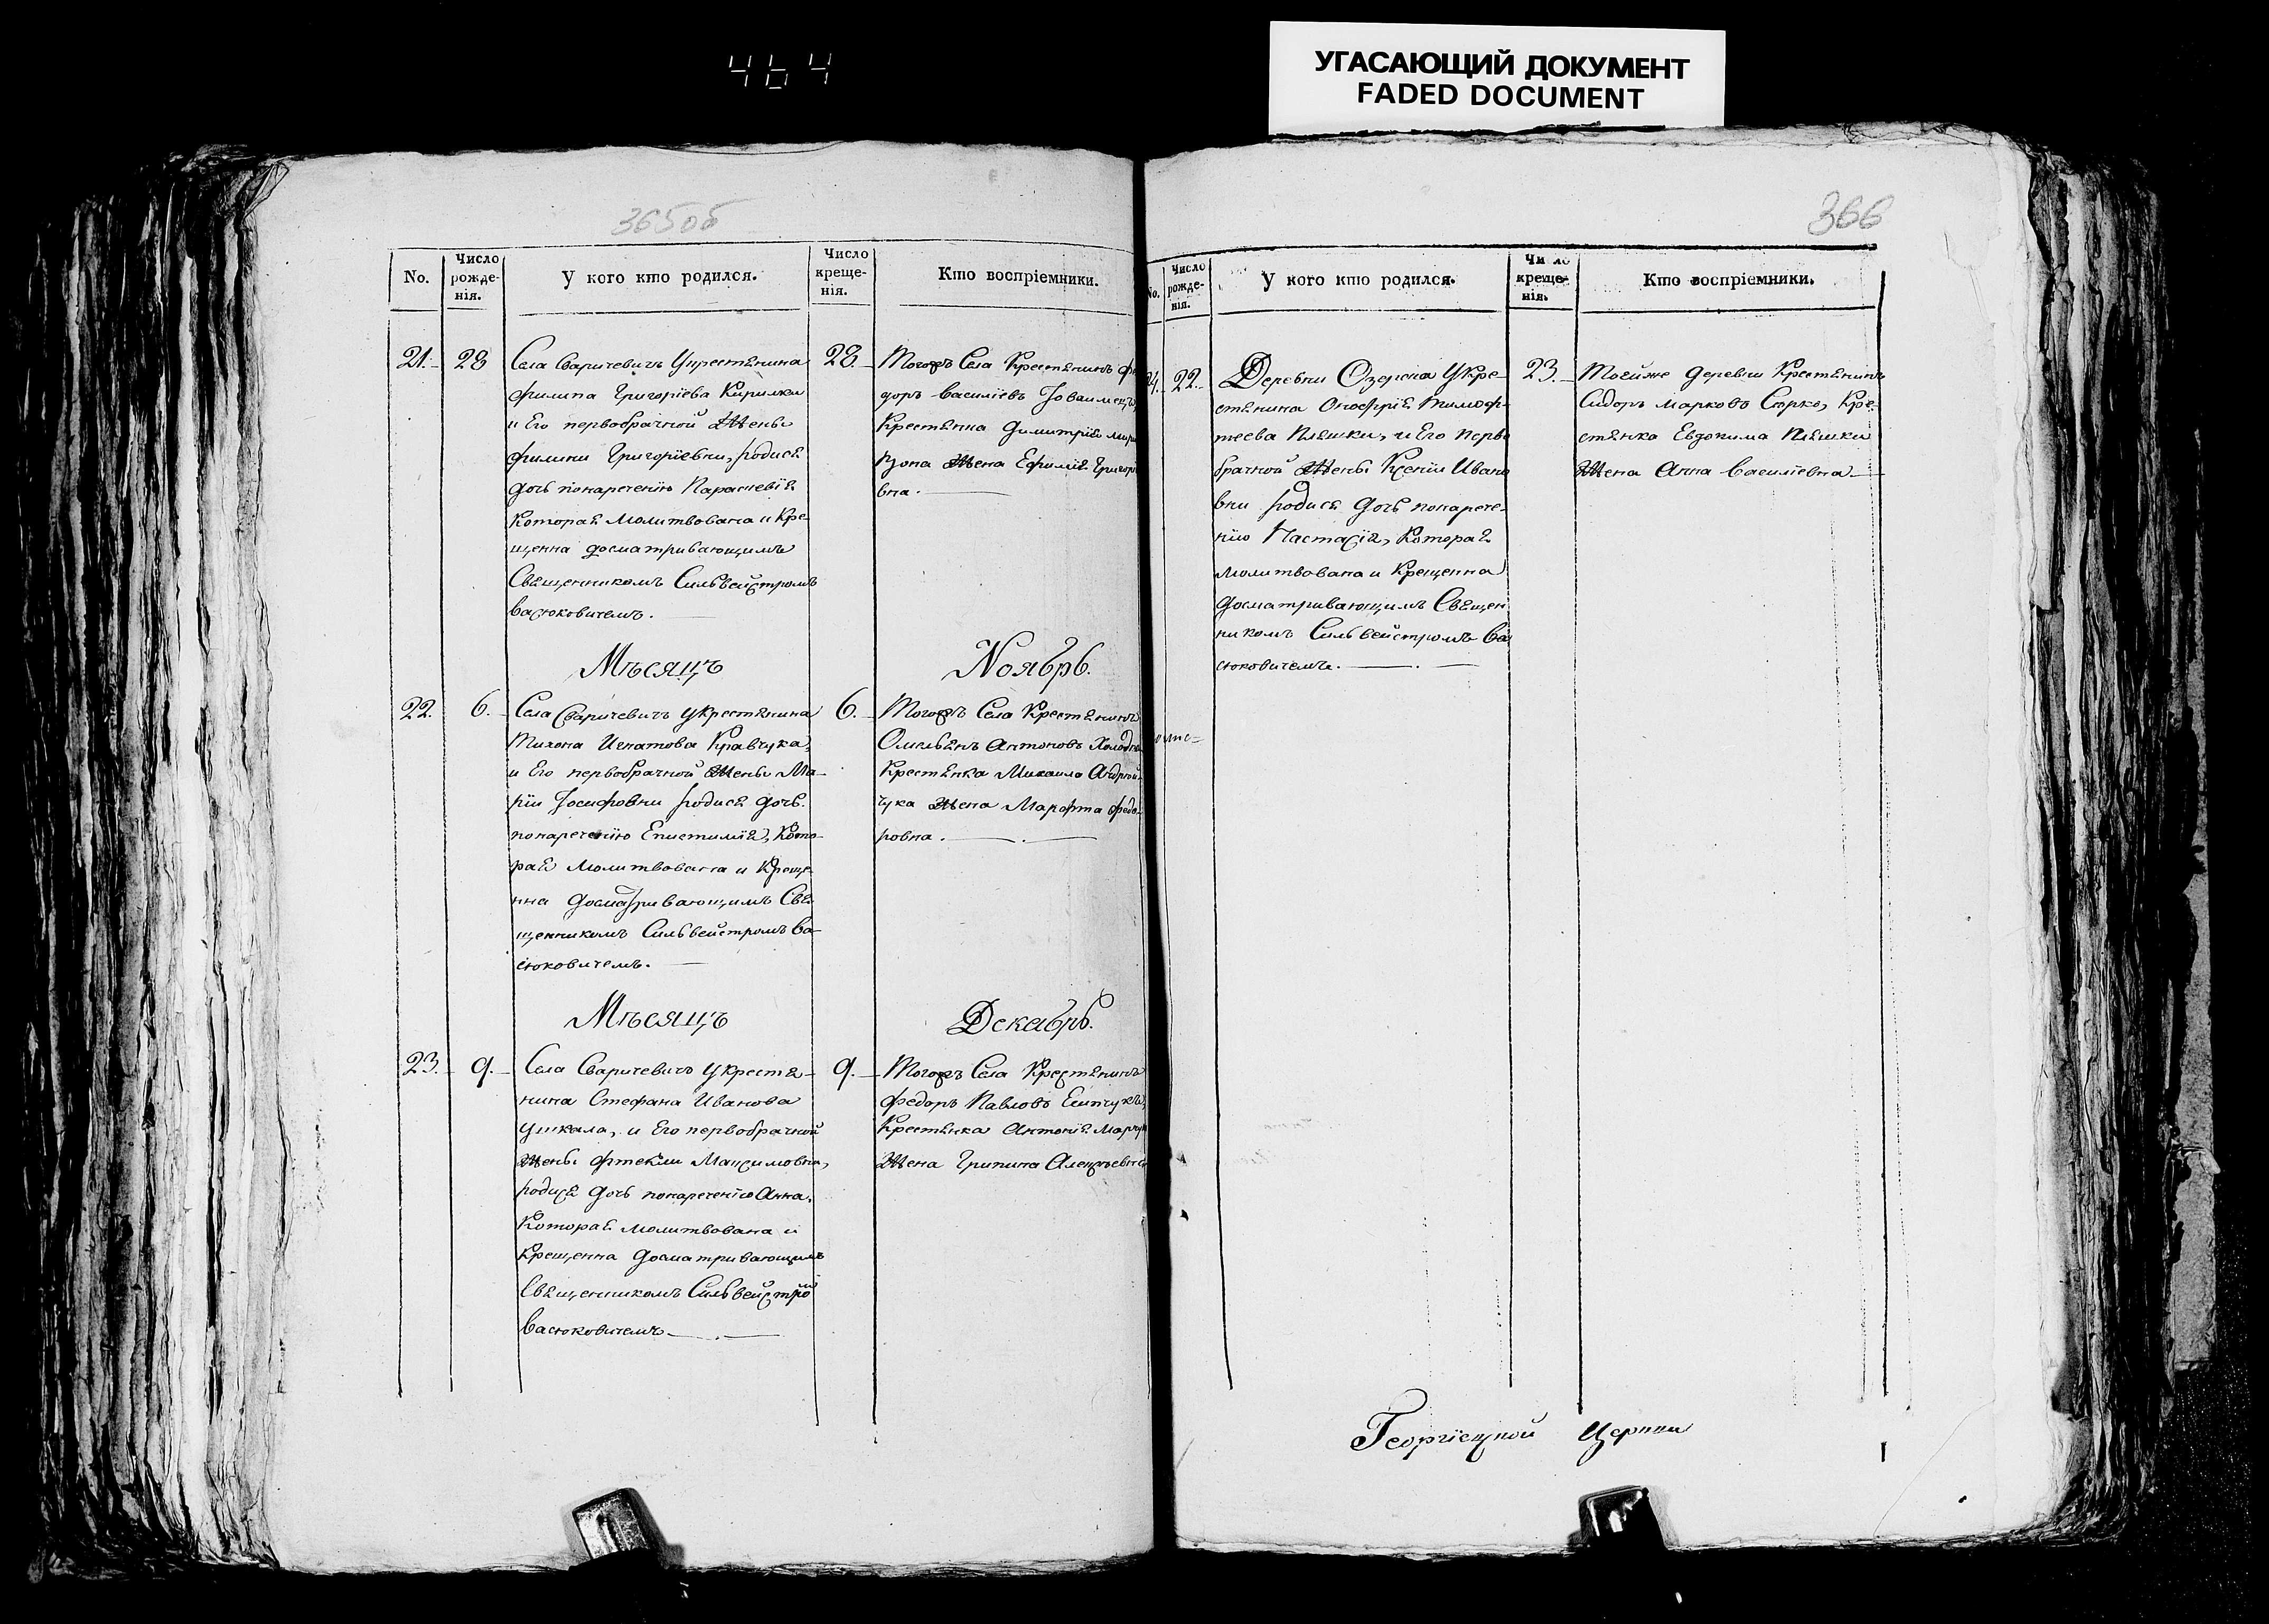 464
УГАСАЮЩИЙ ДОКУМЕНТ
FADED DOCUMENT
365об
No.
Число рожде-нія.
У кого кто родился.
Число креще-нія.
Кто воспріемники.
21.
28
Села Сваричевичъ укрестянина
Филипа Григоріева Кирилки
и Его первобрачной Жены
Филини Григоріевни, родися
дочь понаречению Параскевія
Которая молитвована и Кре-
щенна досматривающимъ
Священникомъ Сильвейстромъ
Васюковичемъ.
28.
Тогожъ Села Крестянинъ Фе
доръ Василіевъ
Крестянка Димитрія
Жена Ефимія Григорі
вна.
Мѣсяцъ
Ноябрь.
22.
6.
Села Сваричевичъ укрестянина
Тихона Игнатова Кравчука,
и Его первобрачной Жены Ма-
ріи Іосифовни родися дочь
понареченію Епистимія, Кото-
рая молитвована и Креще-
нна досматривающимъ Свя
щенникомъ Сильвейстромъ Ва-
сюковичемъ.
6.
Тогожъ Села Крестянинъ
Омельянъ Антоновъ
Крестянка Михаила Андрей-
чука Жена Марфта Федо-
ровна.
Мѣсяцъ
Декабрь.
23.
9.
Села Сваричевичъ укрестя-
нина Стефана Иванова
Ушкала, и Его первобрачной
Жены Фтекли Максимовни,
родися дочь понареченію Анна,
Которая молитвована и
Крещенна досматривающимъ
Священникомъ Сильвейстро
Васюковичемъ
9.
Тогожъ Села Крестянинъ
Федоръ Павловъ
Крестянка Антонія
Жена Грипина Алексѣевна
366
No.
Число рожде-нія.
У кого кто родился.
Число креще-нія.
Кто воспріемники.
24.
22.
Деревни Озерска Укре-
стянина Онофрія Тимоф-
теева Пляшки, и Его перво
брачной Жены Ксеніи Ивано
вни родися дочь понарече-
нію Настасія, Которая
молитвована и Крещенна
досматривающимъ Священ
никомъ Сильвейстромъ Ва
сюковичемъ.
23.
Тойже деревни Крестянинъ
Сидоръ Марковъ Сорко, Кре-
стянка Евдокима Пляшки
Жена Анна Василіевна
Георгіевской Церкви